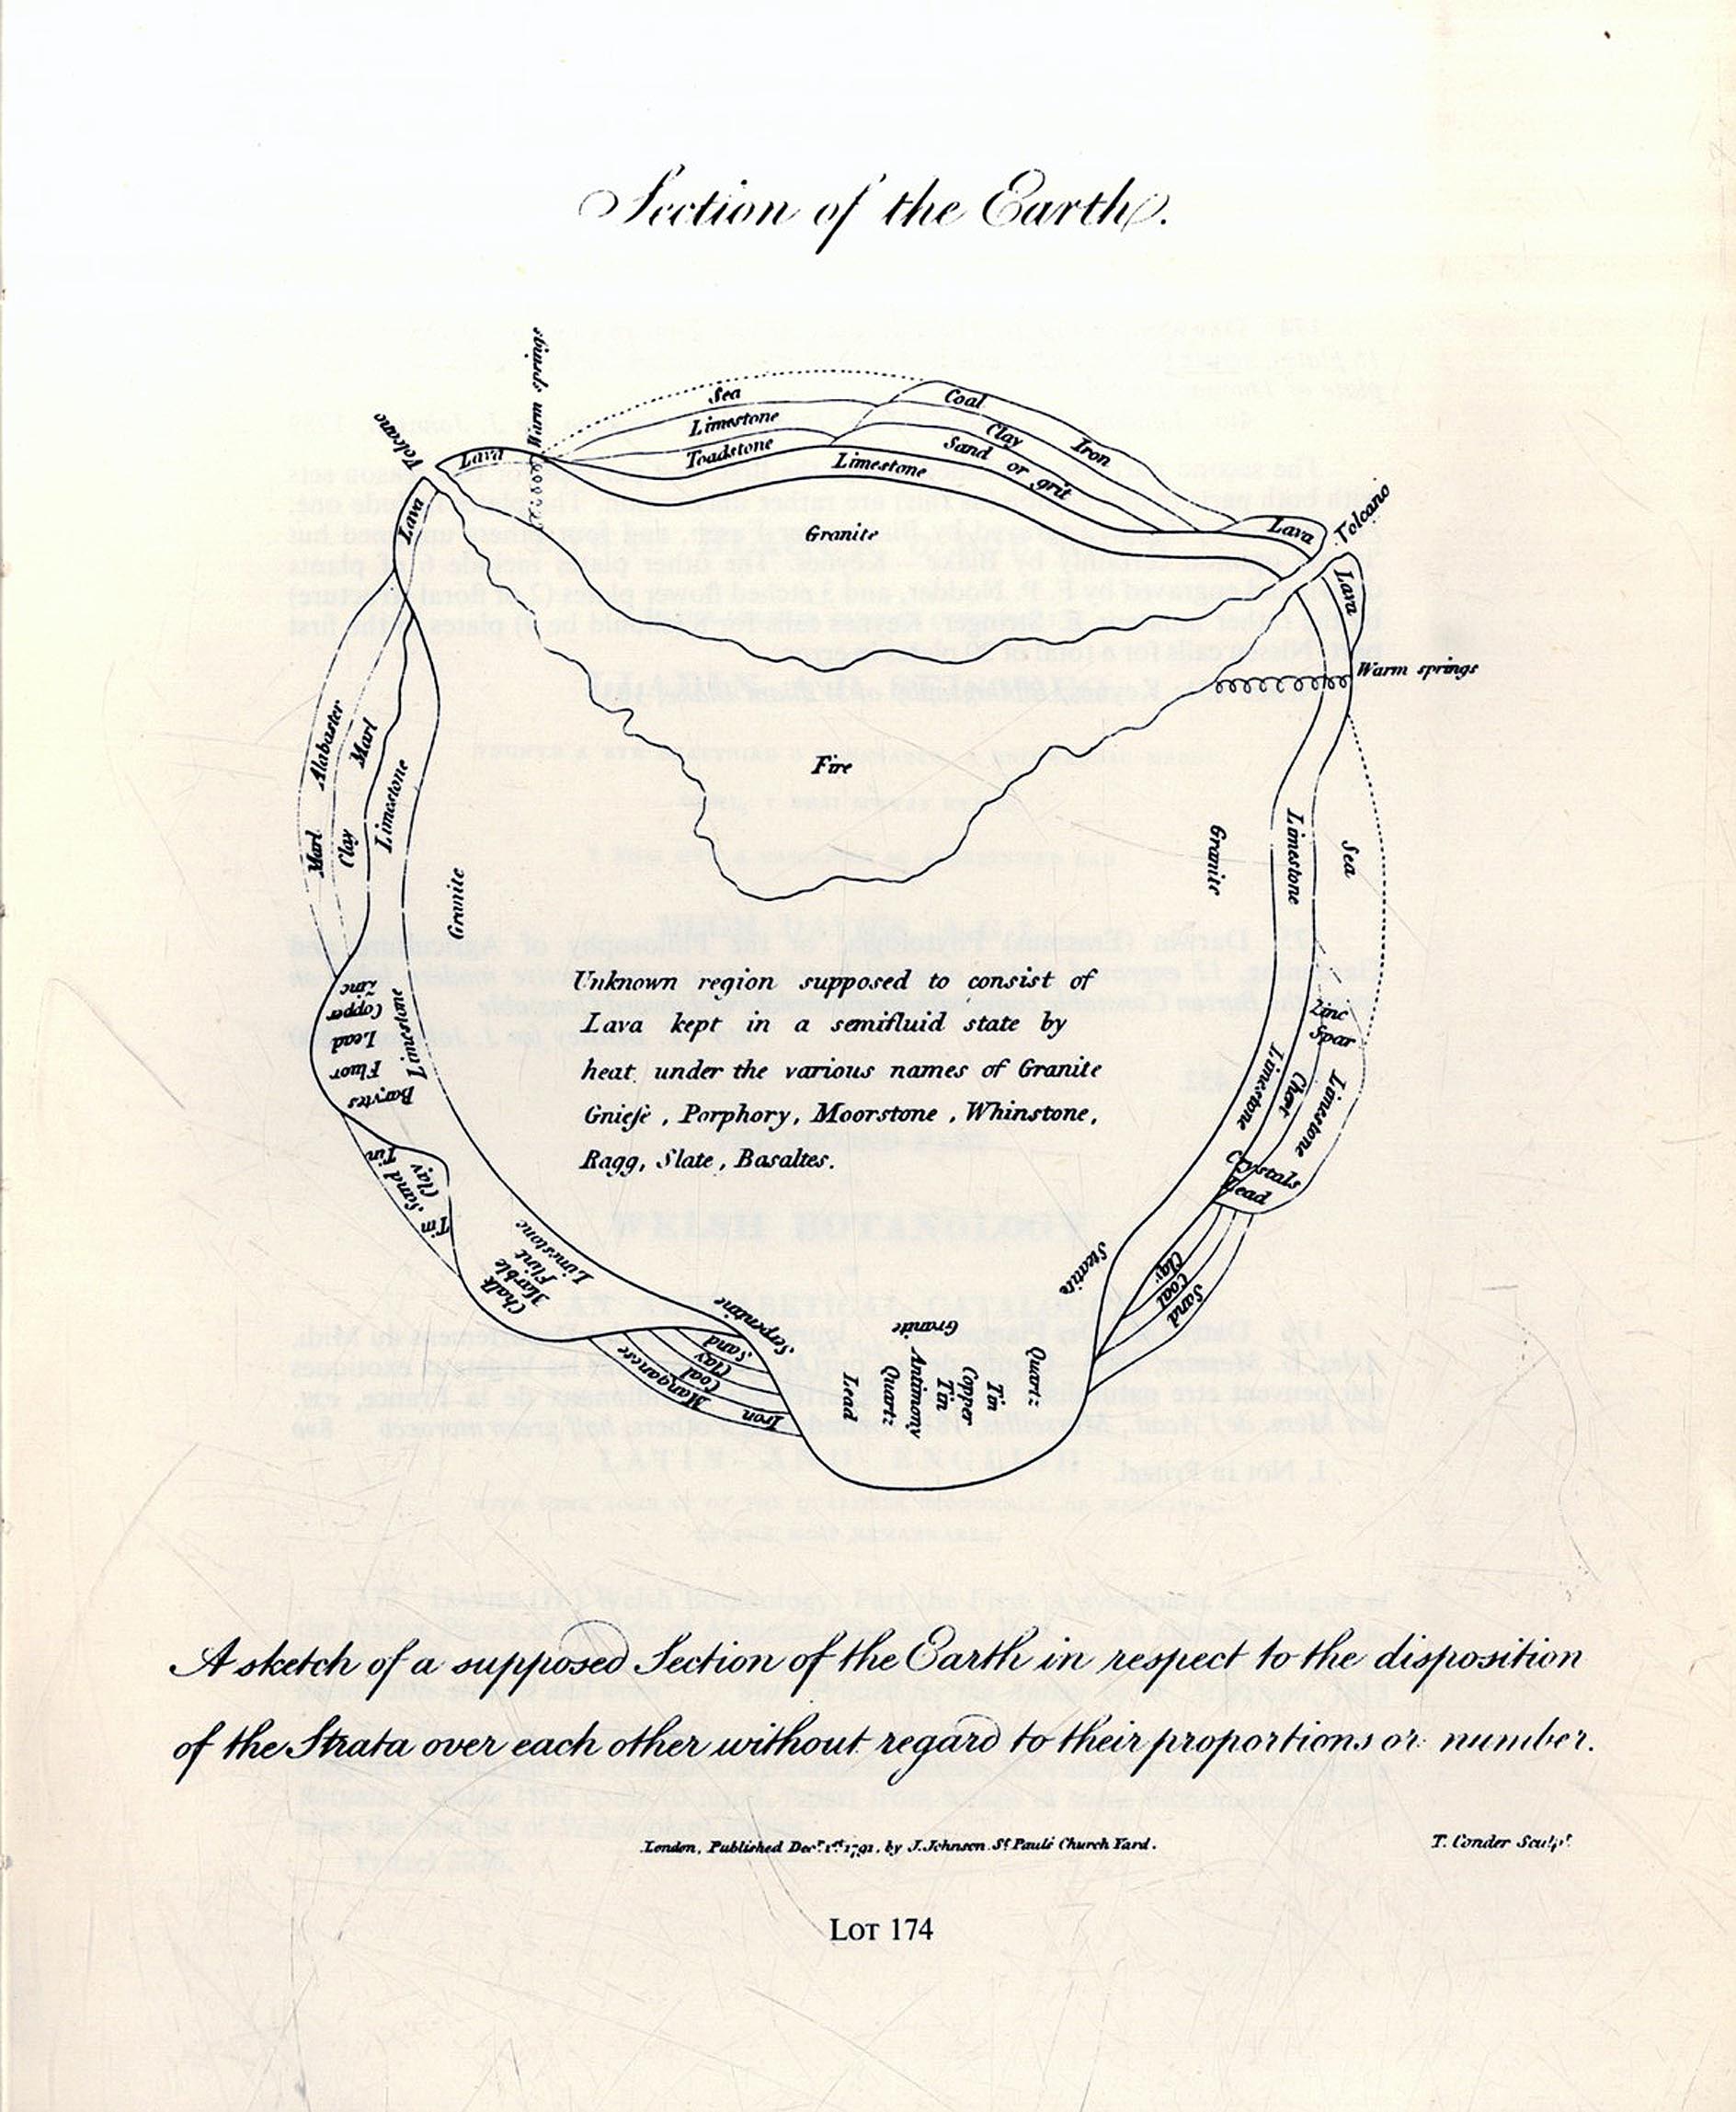 Section of the Earth.
Warm springs
Volcano
Lava
Lava
Sea
Limestone
Toadstone
Limestone
Coal
Clay
Iron
Sand or grit
Granite
Lava
Volcano
Lava
Warm springs
Fire
Alabaster
Marl
Marl
Clay
Limestone
Granite
Granite
Limestone
Sea
Unknown region supposed to consist of
Lava kept in a semifluid state by
heat under the various names of Granite
Gniess, Porphory, Moorstone, Whinstone,
Ragg, Slate, Basaltes.
Zinc
Copper
Lead
Fluor
Barytes
Limestone
Tin
Clay
Sand
Tin
Zinc
Spar
Limestone
Chert
Limestone
Crystals
Lead
Limestone
Flint
Marble
Chalk
Steatite
Clay
Coal
Sand
Serpentine
Sand
Clay
Coal
Manganese
Iron
Granite
Lead
Quartz
Antimony
Tin
Copper
Tin
Quartz
A sketch of a supposed Section of the Earth in respect to the disposition
of the Strata over each other without regard to their proportions or number.
London, Published Decr. 1st 1791, by J. Johnson St. Pauls Church Yard.
T. Conder Sculpt.
LOT 174